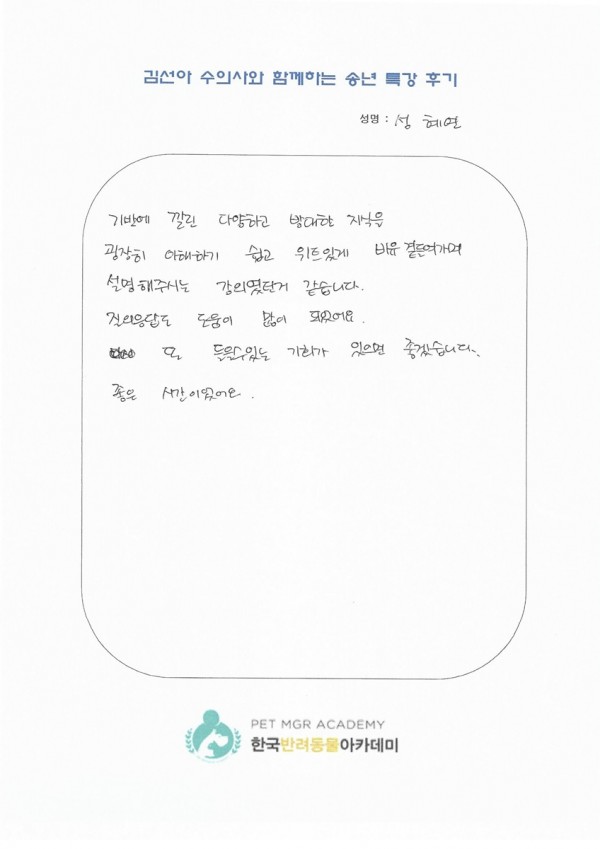 김선아 수의사와 함께하는 송년 특강 후기
성명 : 성 혜연
기반에 깔린 다양하고 방대한 지식을
굉장히 이해하기 쉽고 위트있게 비유 곁들여가며
설명해주시는 강의였던거 같습니다.
질의응답도 도움이 많이 되었어요.
또 들을수있는 기회가 있으면 좋겠습니다.
좋은 시간이었어요.
PET MGR ACADEMY
한국반려동물아카데미